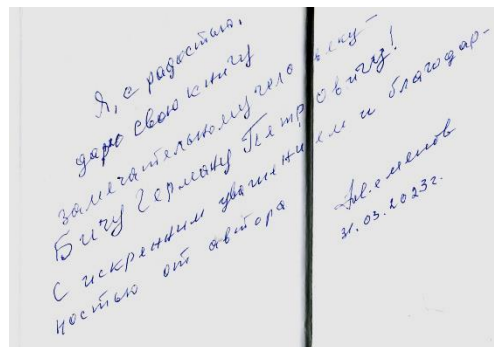 Я, с радостью,
дарю свою книгу
замечательному человеку –
Бичу Герману Петровичу!
С искренним уважением и благодар-
ностью от автора
31.03.2023г.